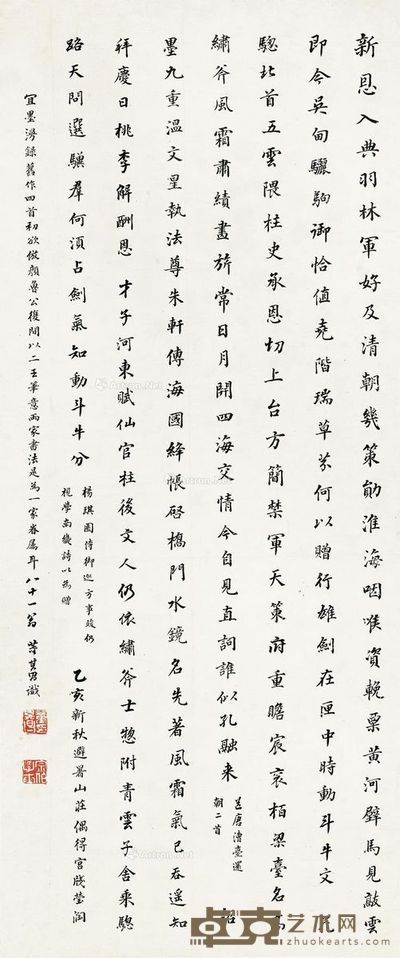 新恩入典羽林軍好及清朝幾策勛淮海咽喉資輓粟黃河璧馬見敲雲
即今吳甸驪駒御恰值堯階瑞草芬何以贈行雄劍在匣中時動斗牛文
驄北首五雲隈柱史承恩切上台方簡禁軍天策府重瞻宸衮栢梁臺名
繡斧風霜肅績畫旂常日月開四海交情今自見直詞誰似孔融來
送唐漕臺還
朝二首
墨九重溫文星執法尊朱軒傳海國絳帳啓橋門水鏡名先著風霜氣已吞遥知
拜慶日桃李解酬恩 才子河東賦仙官柱後文人仍依繡斧士惣附青雲子舍乘驄
路天閑選驥羣何須占劍氣知動斗牛分
楊琪園侍御巡方事竣仍
視學南畿詩以為贈
乙亥新秋避暑山莊偶得宮牋瑩潤
宜墨漫錄舊作四首初欲倣顏魯公後間以二王筆意兩家書法是為一家眷屬耳八十一翁 董其昌識
卓克艺术网
www.zhuokearts.com
Artron.Net